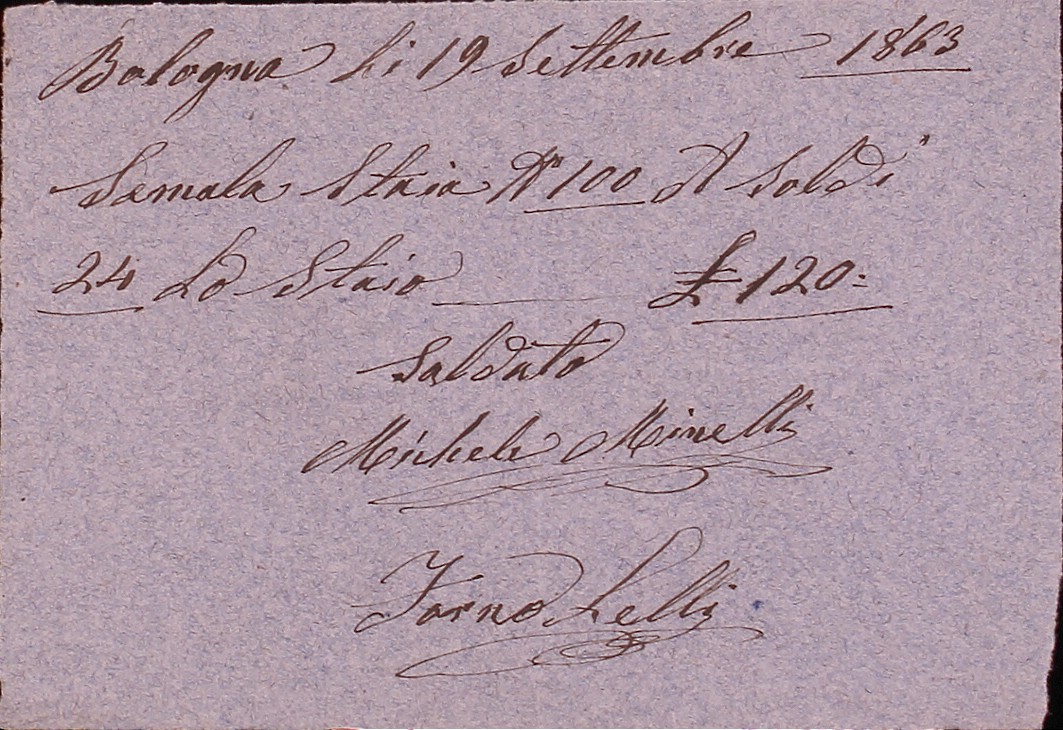 Bologna li 19 Settembre 1863
Semola Staia N° 100 A Soldi
24 Lo Staio £ 120=
Saldato
Michele Minelli
Forno Lelli